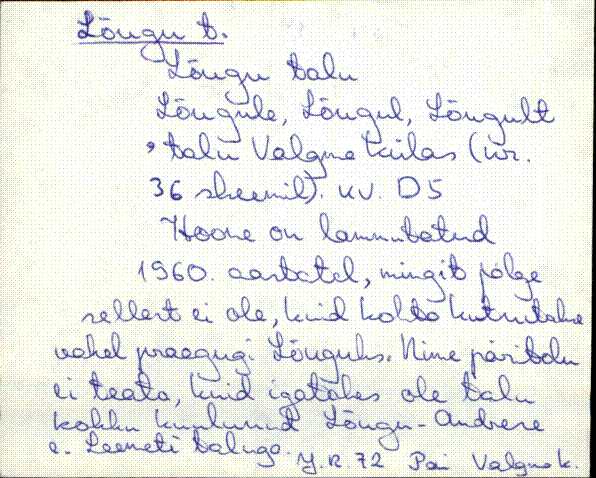 Lõugu t.
Lõugu talu
Lõugule, Lõugul, Lõugult
, talu Valgma külas (nr.
36 skeemil). kv. D5
Hoone on lammutatud
1960. aastatel, mingit jälge
sellest ei ole, kuid kohta kutsutakse
vahel praegugi Lõuguks. Nime päritolu
ei teata, kuid igatahes ole talu
kokku kuulunud Lõugu-Andrese
e. Leemeti taluga.
72 Pai Valgma k.